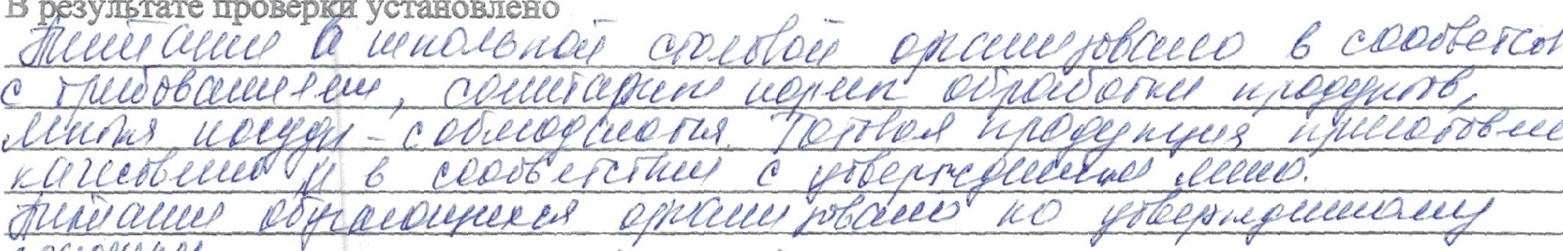 В результате проверки установлено
Питание в школьной столовой организовано в соответств
с требованием, санитарные нормы обработки продуктов,
мытья посуды - соблюдаются. Готовая продукция приготовле
качественно и в соответствии с утвержденным меню.
Питание обучающихся организовано по утвержденному